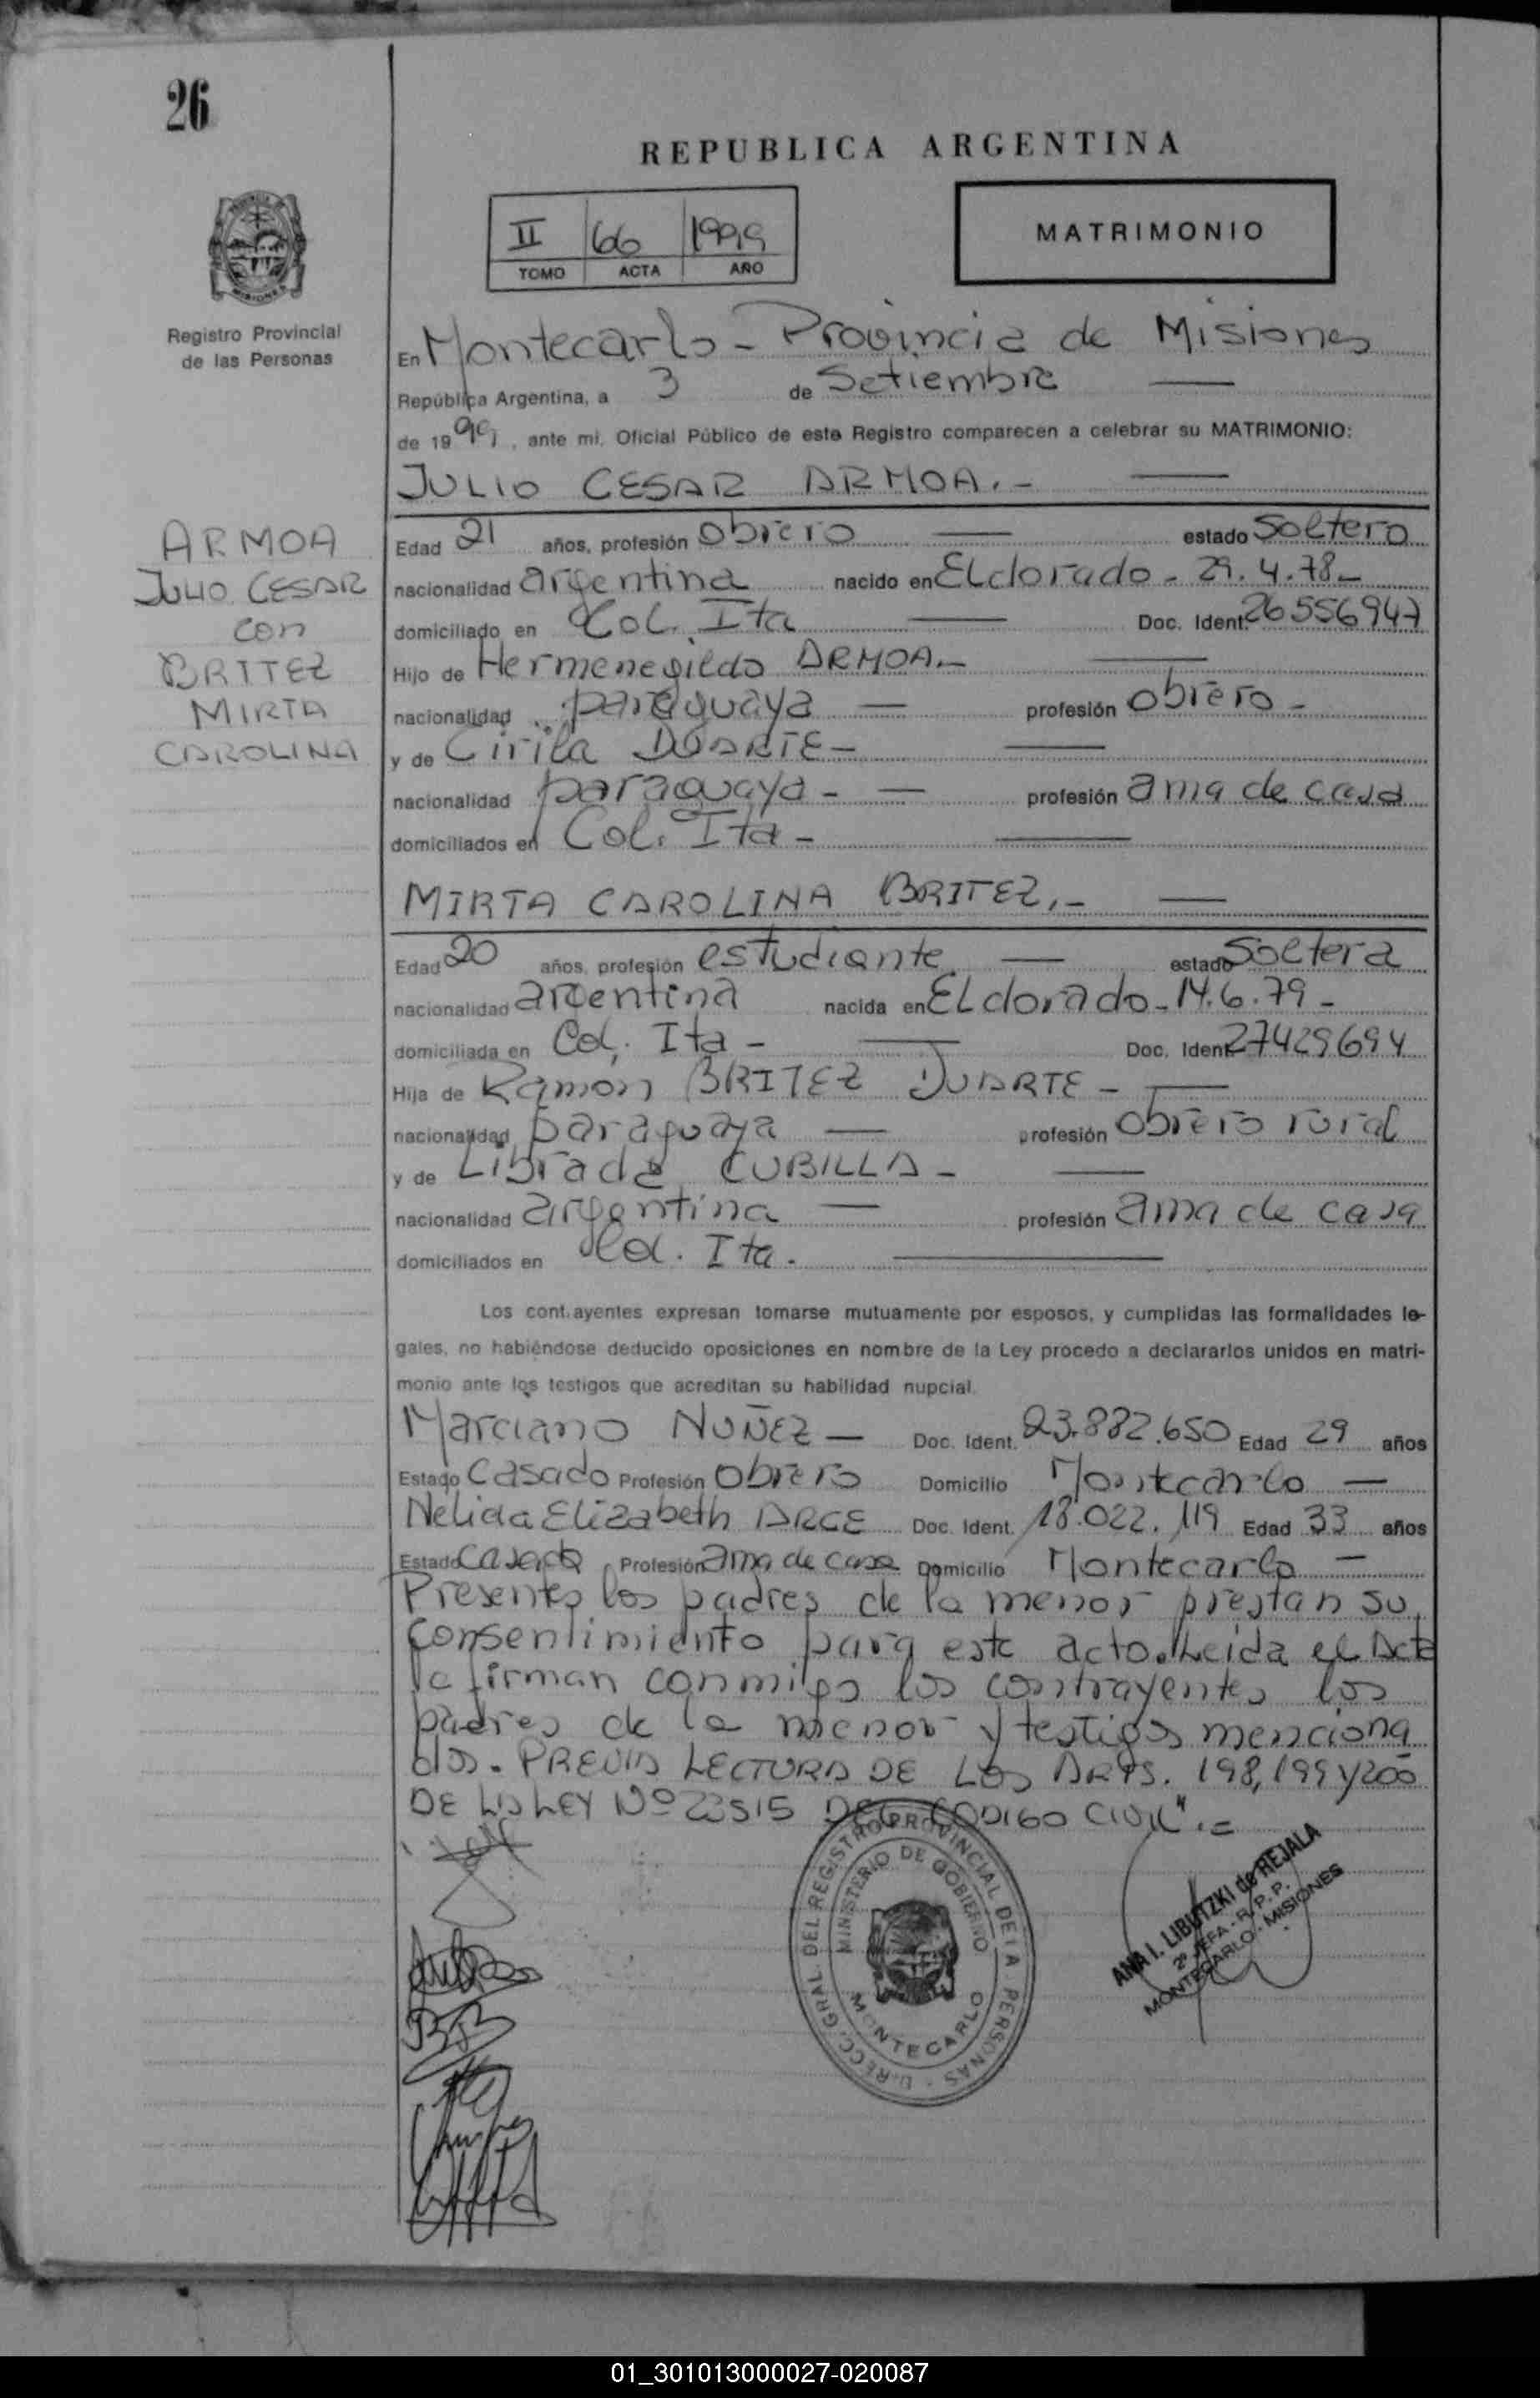 26
REPUBLICA ARGENTINA
II 66 1999
TOMO ACTA AÑO
MATRIMONIO
Registro Provincial
de las Personas
En Montecarlo - Provincia de Misiones
República Argentina, a 3 de Setiembre
de 1999, ante mi, Oficial Público de este Registro comparecen a celebrar su MATRIMONIO:
JULIO CESAR ARMOA.-
ARMOA
JULIO CESAR
con
BRITEZ
MIRTA
CAROLINA
Edad 21 años, profesión obrero estado Soltero
nacionalidad argentina nacido en ELdorado - 29.4.78-
domiciliado en Col. Ita Doc. Ident. 26556947
Hijo de Hermenegildo ARMOA.-
nacionalidad paraguaya profesión obrero -
y de Cirila DUARTE -
nacionalidad paraguaya - profesión ama de casa
domiciliados en Col. Ita -
MIRTA CAROLINA BRITEZ.-
Edad 20 años, profesión estudiante estado Soltera
nacionalidad argentina nacida en ELdorado - 14.6.79 -
domiciliada en Col. Ita - Doc. Ident 27429694
Hija de Ramón BRITEZ DUARTE -
nacionalidad paraguaya profesión obrero rural
y de Librada CUBILLA -
nacionalidad argentina profesión ama de casa
domiciliados en Col. Ita.
Los contrayentes expresan tomarse mutuamente por esposos, y cumplidas las formalidades le-
gales, no habiéndose deducido oposiciones en nombre de la Ley procedo a declararlos unidos en matri-
monio ante los testigos que acreditan su habilidad nupcial.
Marciano NUÑEZ - Doc. Ident. 23.882.650 Edad 29 años
Estado Casado Profesión Obrero Domicilio Montecarlo -
Nelida Elizabeth ARCE Doc. Ident. 18.022.119 Edad 33 años
Estado Casada Profesión ama de casa Domicilio Montecarlo -
Presentes los padres de la menor prestan su
consentimiento para este acto. Leida el Acta
la firman conmigo los contrayentes los
padres de la menor y testigos menciona
dos. PREVIA LECTURA DE LOS ARTS. 198, 199 y 200
DE LA LEY Nº 23515 DEL CODIGO CIVIL".=
DIRECC. GRAL. DEL REGISTRO PROVINCIAL DE LA PERSONAS
MINISTERIO DE GOBIERNO
MONTECARLO
ANA I. LIBUTZKI de REJALA
2º JEFA - R. P. P.
MONTECARLO - MISIONES
01_301013000027-020087